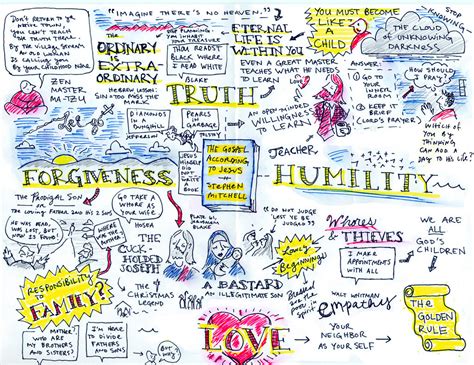 "IMAGINE THERE'S NO HEAVEN."
DON'T RETURN TO YE
NATIVE TOWN!
YOU CAN'T TEACH
THE TRUTH THERE.
BY THE VILLAGE STREAM
AN OLD WOMAN
IS CALLING YOU
BY YOUR CHILDHOOD NAME
ZEN
MASTER
MA-TZU
THE
ORDINARY
IS
EXTRA
ORDINARY
HEBREW LESSON:
SIN = TO MISS THE
MARK
TREASURE
THOU READST
BLACK WHERE
I READ WHITE
BLAKE
ETERNAL
LIFE IS
WITHIN
YOU
EVEN A GREAT MASTER
TEACHES WHAT HE NEEDS
TO LEARN
YOU MUST BECOME
LIKE
A
CHILD
THE CLOUD
OF
UNKNOWING
DARKNESS
STOP
KNOWING
ANSWER:
① GO TO
YOUR
INNER
ROOM
② KEEP IT
BRIEF
(LORD'S PRAYER)
HOW SHOULD
I PRAY?
WHICH OF
YOU BY
THINKING
CAN ADD A
DAY TO HIS LIFE?
TRUTH
AN OPEN-MINDED
WILLINGNESS
TO
LEARN
DIAMONDS
IN A
DUNGHILL
JEFFERSON
PEARLS
IN
GARBAGE
TOLSTOY
JESUS
HIMSELF
DID NOT
WRITE A
BOOK
THE GOSPEL
ACCORDING
TO
JESUS
STEPHEN
MITCHELL
TEACHER
FORGIVENESS
HUMILITY
THE PRODIGAL SON
OR
THE LOVING FATHER AND HIS 2 SONS
WAS LOST, BUT
NOW IS FOUND!
GO TAKE A
WHORE AS
YOUR WIFE
HOSEA
WHERE
ARE THE
PLATE 61,
JERUSALEM
BLAKE
"DO NOT JUDGE
LEST YE BE
JUDGED"
WHORES
& THIEVES
I MAKE
APPOINTMENTS
WITH ALL
WE ARE
ALL
GOD'S
CHILDREN
THE
CUCK-
HOLDED
JOSEPH
THE
CHRISTMAS
LEGEND
A BASTARD
AN ILLEGITIMATE SON
BEGINNINGS
BLESSED
ARE THE
POOR IN
SPIRIT
WALT WHITMAN
EMPATHY
YOUR
NEIGHBOR
AS YOUR SELF
THE
GOLDEN
RULE
RESPONSIBILITY
TO
FAMILY?
MOTHER?
WHO ARE
MY BROTHERS
AND SISTERS?
I'M HERE
TO DIVIDE
FATHERS
AND SONS
BUT
WHY?
LOVE